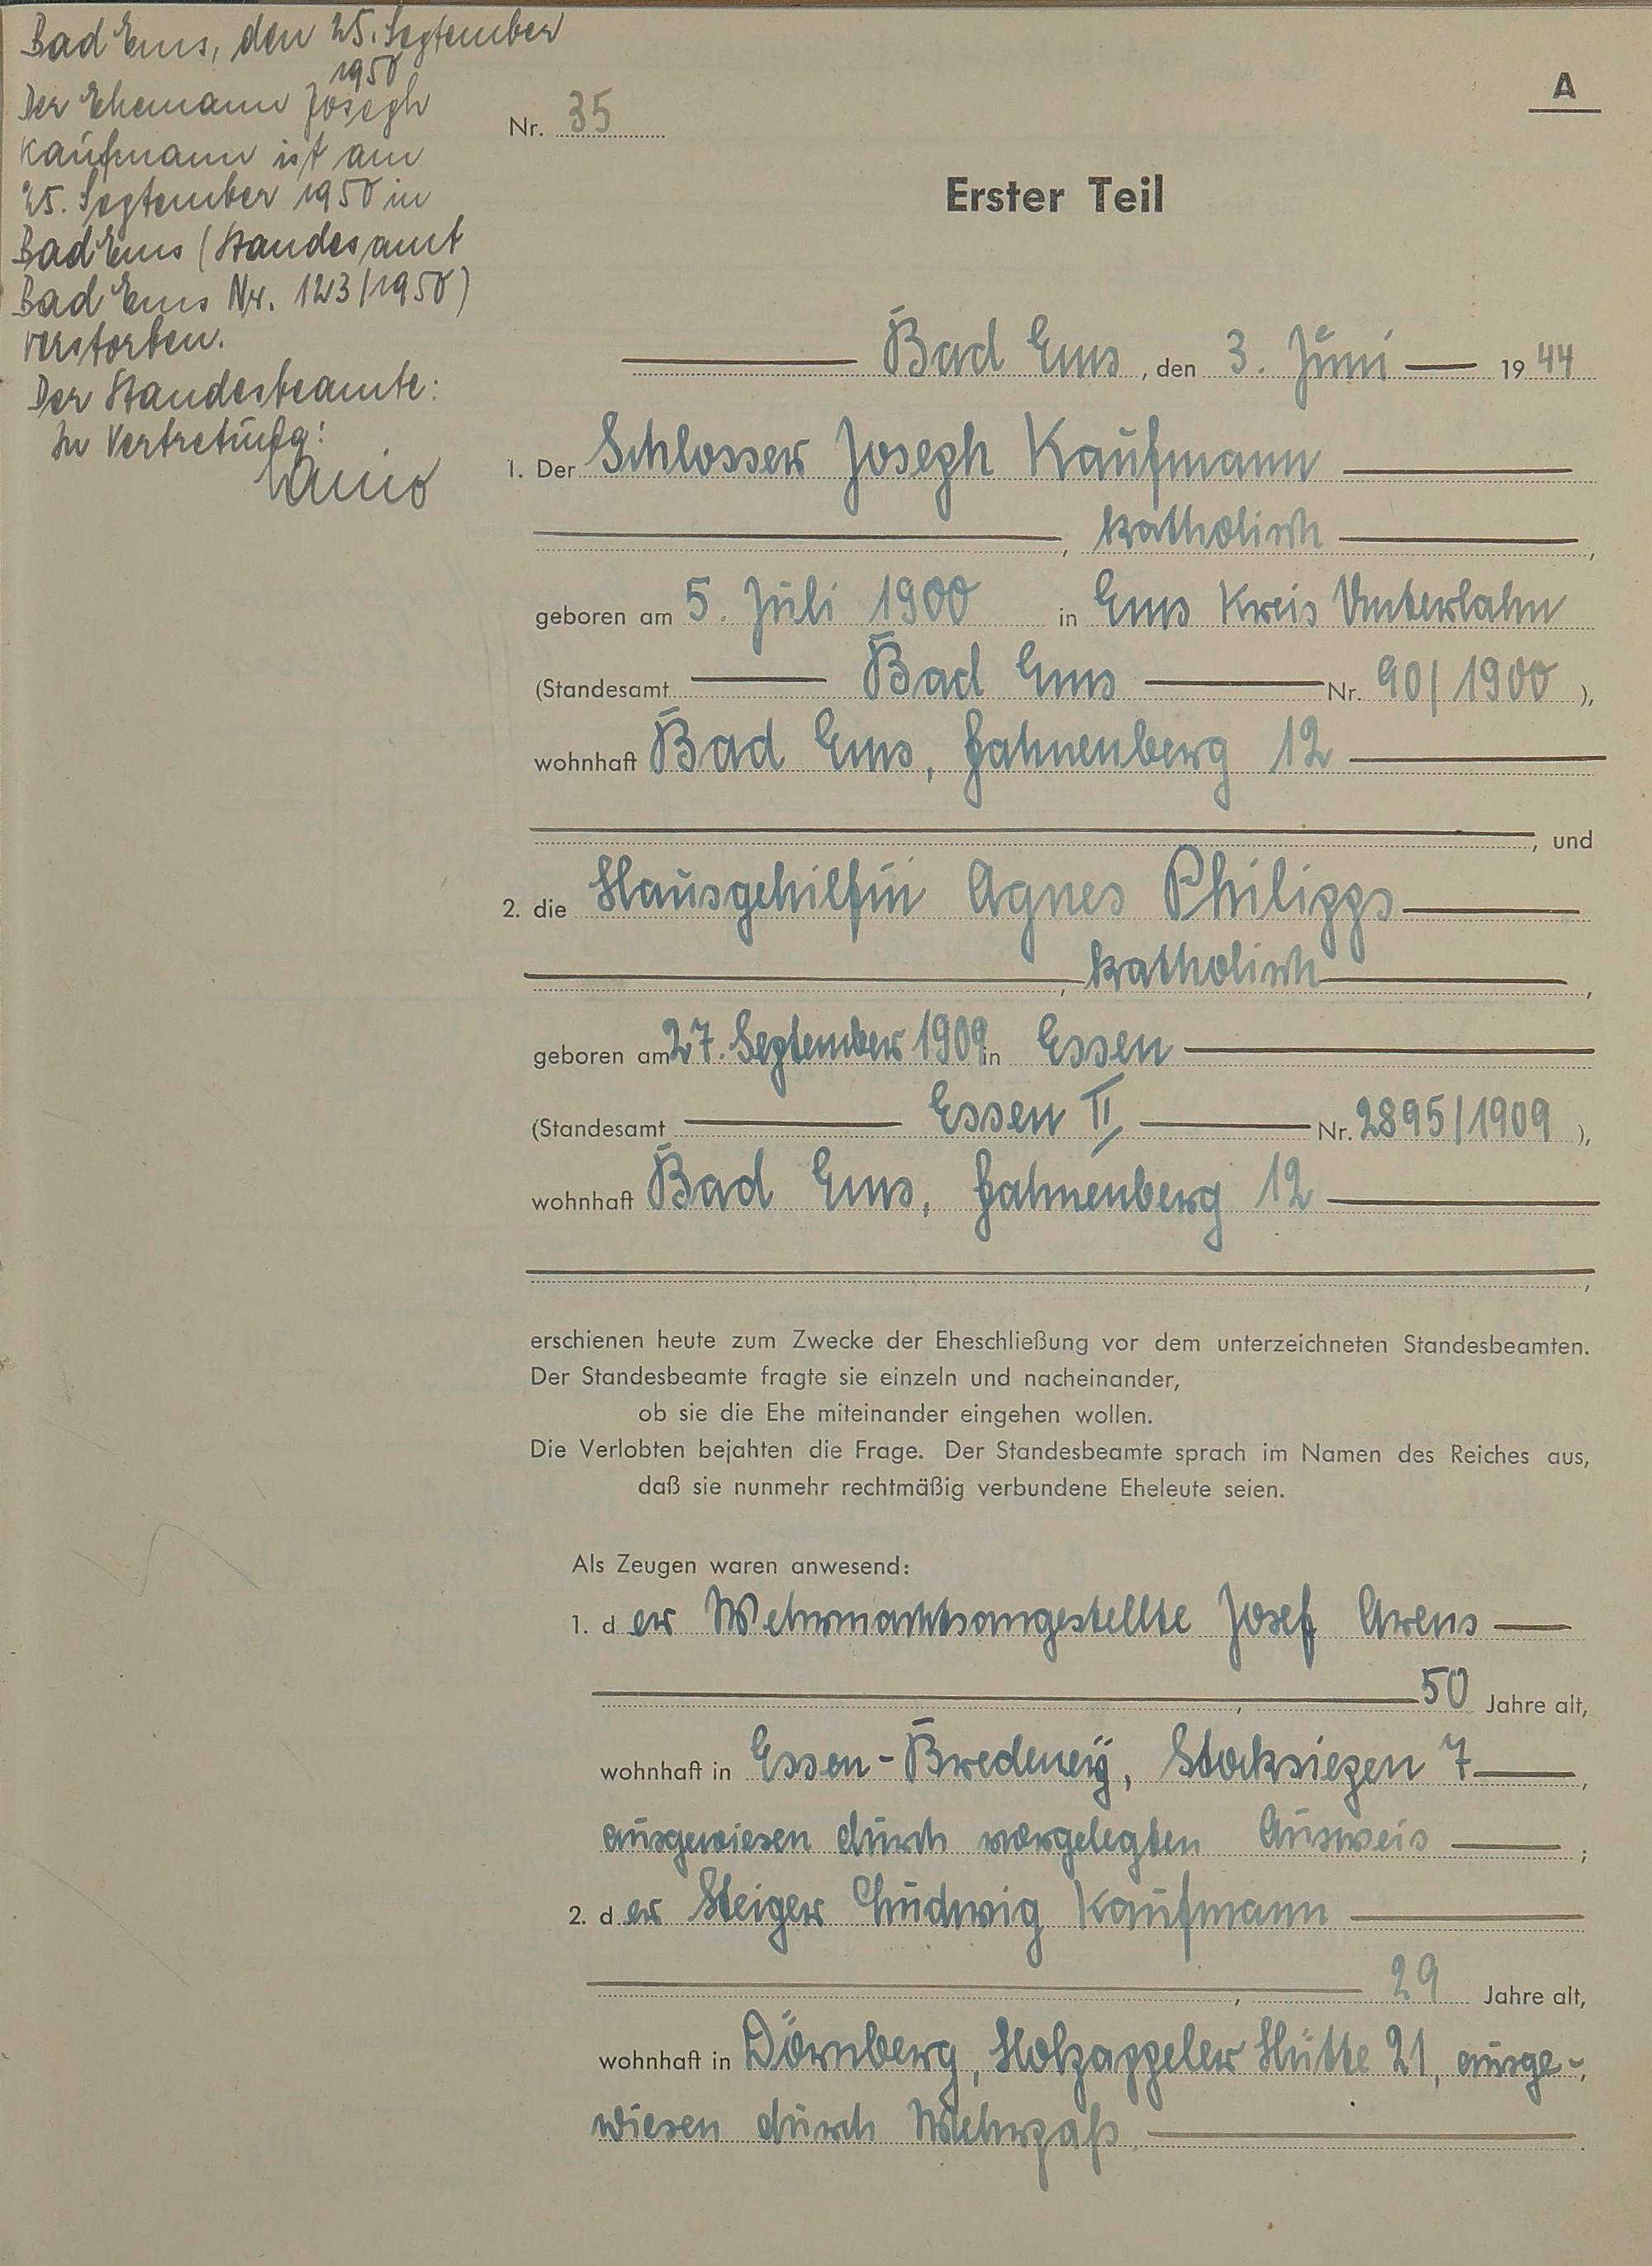 Bad Ems, den 25. September
1950
Der Ehemann Joseph
Kaufmann ist am
25. September 1950 in
Bad Ems (Standesamt
Bad Ems Nr. 123/1950)
verstorben.
Der Standesbeamte:
In Vertretung:
A
Nr. 35
Erster Teil
Bad Ems, den 3. Juni 1944
1. Der Schlosser Joseph Kaufmann
, katholisch,
geboren am 5. Juli 1900 in Ems Kreis Unterlahn
(Standesamt Bad Ems Nr. 90/1900),
wohnhaft Bad Ems, Hahnenberg 12
, und
2. die Hausgehilfin Agnes Philipps
, katholisch,
geboren am 27. September 1909 in Essen
(Standesamt Essen II, Nr. 2895/1909),
wohnhaft Bad Ems, Hahnenberg 12
,
erschienen heute zum Zwecke der Eheschließung vor dem unterzeichneten Standesbeamten.
Der Standesbeamte fragte sie einzeln und nacheinander,
ob sie die Ehe miteinander eingehen wollen.
Die Verlobten bejahten die Frage. Der Standesbeamte sprach im Namen des Reiches aus,
daß sie nunmehr rechtmäßig verbundene Eheleute seien.
Als Zeugen waren anwesend:
1. der Wehrmachtsangestellte Josef Arens
, 50 Jahre alt,
wohnhaft in Essen-Bredeney, Stocksiepen 7,
ausgewiesen durch vorgelegten Ausweis;
2. der Steiger Ludwig Kaufmann
, 29 Jahre alt,
wohnhaft in Dörnberg, Holzappeler Hütte 21, ausge-,
wiesen durch Wehrpaß.